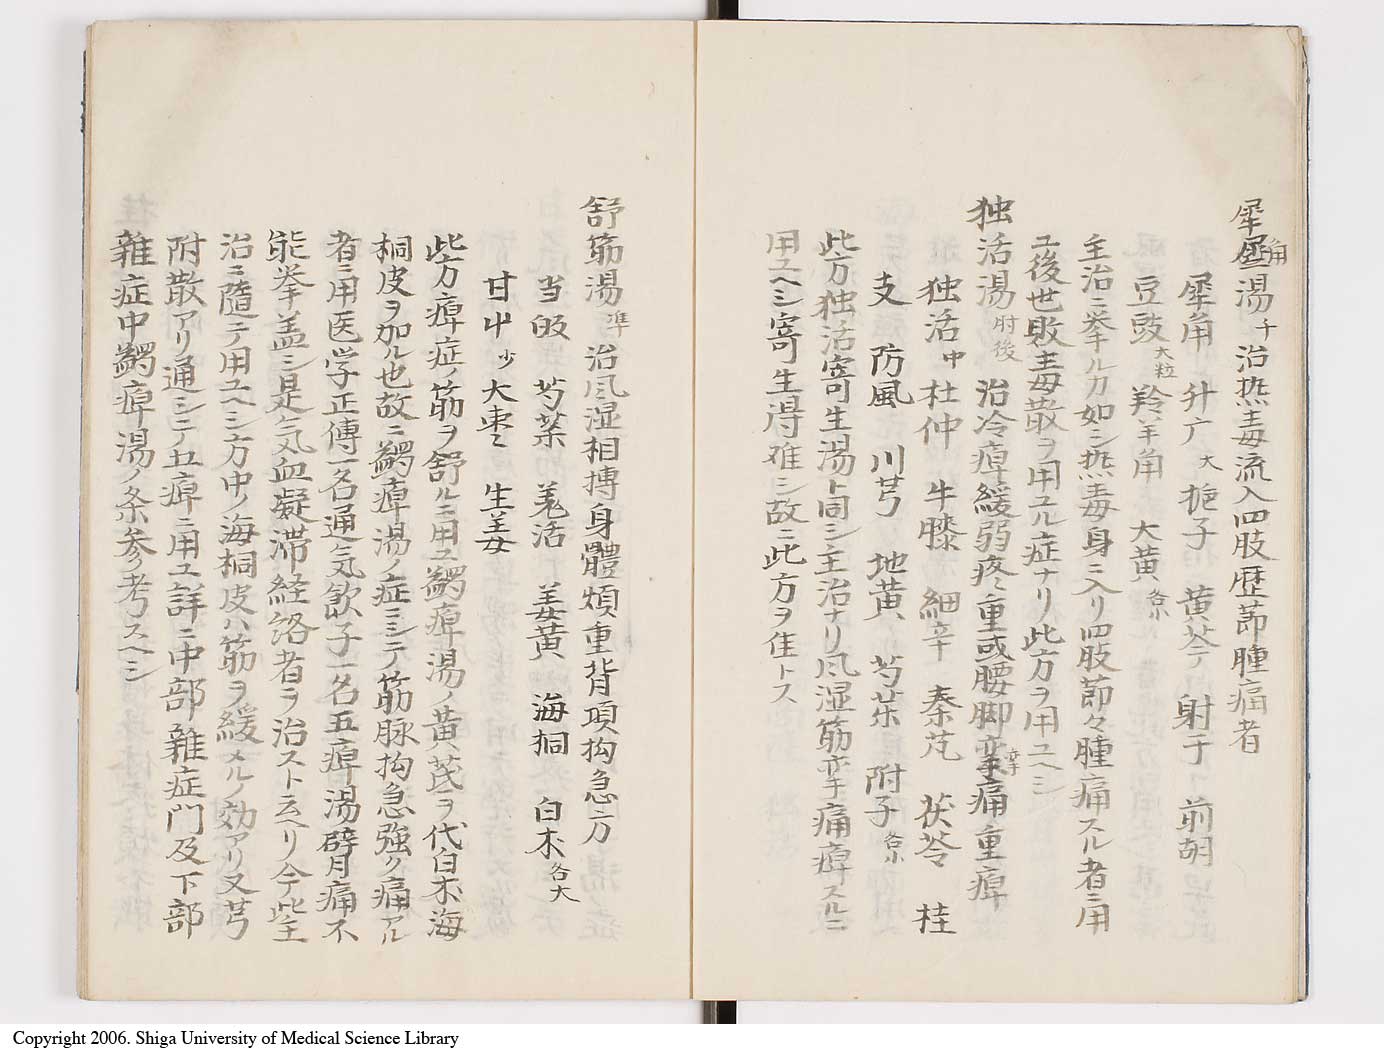 犀角湯千治热毒流入四肢歴莭腫痛者
犀角 升广大 梔子 黄芩 射干 前胡
豆豉大粒 羚羊角 大黄各小
主治ニ挙ルカ如ニ热毒身ニ入リ四肢莭々腫痛スル者ニ用
ユ後世敗毒散ヲ用ユル症ナリ此方ヲ用ユヘシ
独活湯肘後 治冷痺緩弱疼重或腰脚挛痛重痺
独活中 杜仲 牛膝 細辛 秦艽 茯苓 桂
支 防風 川芎 地黄 芍薬 附子各小
此方独活寄生湯ト同シ主治ナリ凨湿筋挛痛痺スルニ
用ユヘシ寄生得难シ故ニ此方ヲ佳トス
舒筋湯準 治凨湿相搏身體煩重背項拘急方
当皈 芍薬 羗活 姜黄 海桐 白朮各大
甘艸少 大枣 生姜
此方痺症ノ筋ヲ舒ルニ用ユ蠲痺湯ノ黄茋ヲ代白朮海
桐皮ヲ加ル也故ニ蠲痺湯ノ症ニシテ筋脉拘急強ク痛アル
者ニ用医学正傳一名通気飲子一名五痺湯臂痛不
能挙盖シ是気血凝滞経絡者ヲ治スト云ヘリ今此主
治ニ隨テ用ユヘシ方中ノ海桐皮ハ筋ヲ緩メルノ効アリ又芎
附散アリ通シテ五痺ニ用ユ詳ニ中部雜症門及下部
雜症中蠲痺湯ノ条参考スヘシ
Copyright 2006. Shiga University of Medical Science Library